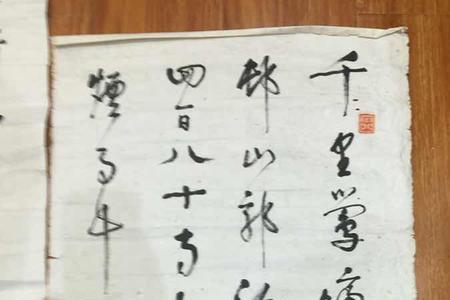 千里鶯啼
邨山郭
四百八十寺
煙雨中